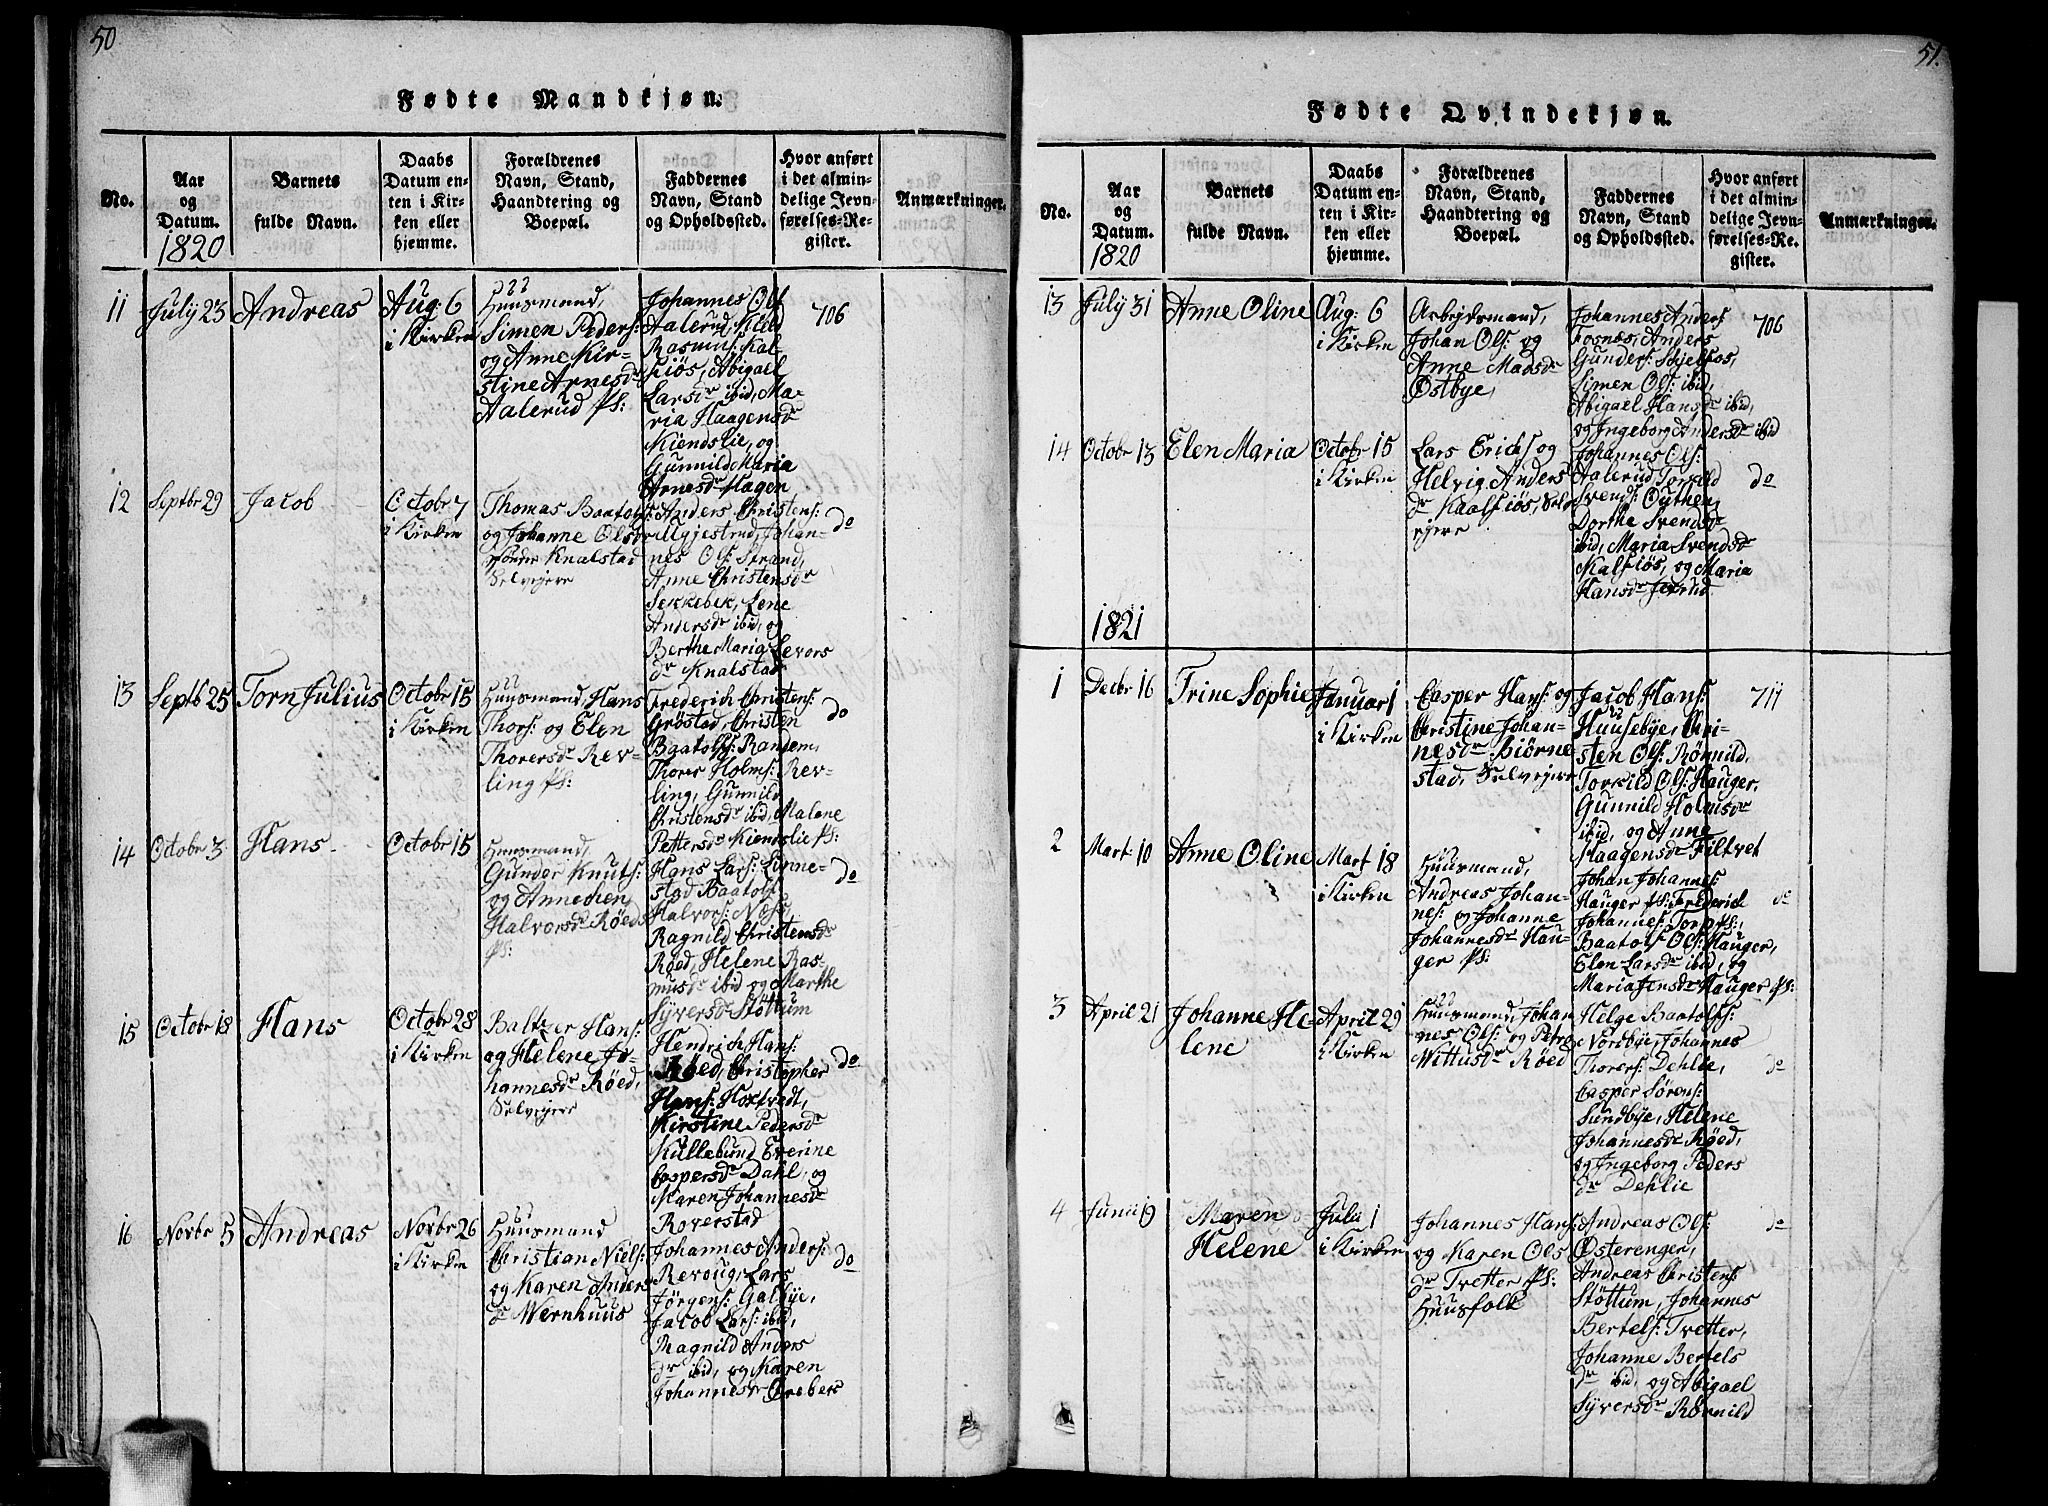 50
Fødte Mandkjøn.
No.
Aar
og
Datum.
1820
Barnets
fulde Navn.
Daabs
Datum en-
ten i Kir-
ken eller
hjemme.
Forældrenes
Navn, Stand,
Haandtering og
Boepæl.
Faddernes
Navn, Stand
og Opholdssted.
Hvor anført
i det almin-
delige Jevn-
førelses-Re-
gister.
Anmærkninger.
11
July 23
Andreas
Aug: 6
i Kirken
Huusmand,
Simen Peders:
og Anne Kir-
stine Arnesdr
Aalerud Ps:
Johannes Ols
Aalerud,
Rasmus: Kal-
siøs, Abigael
Larsdr ibid, Ma-
ria Haagensdr
Kiendslie, og
Gunnild Maria
Arnesdr Hagen
706
12
Septbr 29
Jacob
October 7
i Kirken
Thomas Baatols:
og Johanne Olsdr
Knalstad
Selvejere
Anders Christens:
Illgjestrud, Johan-
nes Ols: Strand,
Anne Christensdr
Sekkebek, Lene
Andersdr ibid, og
Berthe Maria Levors
dr Knalstad
do
13
Septb 25
Torn Julius
Octobr 15
i Kirken
Huusmand, Hans
Thors: og Elen
Thorersdr Rev-
ling Ps:
Frederich Christens:
Grøstad, Christen
Baatolfs: Randem,
Thorer Holms: Rev-
ling, Gunnild
Christensdr ibid, Malene
Pettersdr Kiendslie Ps:
do
14
Octobr 3
Hans
Octobr 15
Huusmand,
Gunder Knuts:
og Annechen
Halvorsdr Røed
Ps:
Hans Lars: Linne-
stad Baatolf
Halvors: Næs,
Ragnild Christensdr
Røed, Helene Ras-
musdr ibid og Marthe
Syversdr Støttum
do
15
Octobr 18
Hans
Octobr 28
i Kirken
Baltzer Hans:
og Helene Jo-
hannesdr Røed,
Selvejere
Hendrich Hans:
Røed, Christopher
Hans: Hoxtvedt,
Kirstine Pedersdr
Kullebund Everine
Caspersdr Dahl, og
Maren Johannesdr
Roverstad
do
16
Novbr 5
Andreas
Novbr 26
i Kirken
Huusmand
Christian Niels:
og Karen Anders
dr Wernhuus
Johannes Anders:
Revoug, Lars
Jörgens: Galbye,
Jacob Lars: ibid,
Magnild Anders
dr ibid, og Karen
Johannesdr Oreber
do
51.
Fødte Qvindekjøn.
No.
Aar
og
Datum.
1820
Barnets
fulde Navn.
Daabs
Datum en-
ten i Kir-
ken eller
hjemme.
Forældrenes
Navn, Stand,
Haandtering og
Boepæl.
Faddernes
Navn, Stand
og Opholdssted.
Hvor anført
i det almin-
delige Jevn-
førelses-Re-
gister.
Anmærkninger.
13
July 31
Anne Oline
Aug: 6
i Kirken
Arbejdsmand,
Johan Ols: og
Anne Madsdr
Østbye,
Johannes Anders
Fosnæs, Anders
Gunders: Skjelsas,
Simen Ols: ibid,
Abigael Hansdr ibid,
og Ingeborg Andersdr ibid
706
14
Octobr 13
Elen Maria
Octobr 15
i Kirken
Lars Erichs og
Helvig Anders
dr Kaalsiøs, Selv
ejere
Johannes Ols:
Aalerud Torkild
Svends: Outhen
Dorthe Svendsdr
ibid, Maria Svendsdr
Kalsiøs, og Maria
Hansdr Jerrud
do
1821
1
Decbr 16
Trine Sophie
Januar 1
i Kirken
Casper Hans: og
Christine Johan-
nesdr Biørne-
stad, Selvejere
Jacob Hans:
Huusebye, Chri-
sten Ols: Rømild,
Torkild Ols: Hauger,
Gunnild Holmsdr
ibid, og Anne
Haagensdr Filtvet
711
2
Mart 10
Anne Oline
Mart 18
i Kirken
Huusmand,
Andreas Johan-
nes: og Johanne
Johannesdr Hau-
ger Ps:
Johan Johannes:
Hauger Ps: Friderich
Johannes: Torp Ps:,
Baatolf Ols: Hauger,
Elen Larsdr ibid, og
Maria Jensdr Hauger Ps:
do
3
April 21
Johanne He-
lene
April 29
i Kirken
Huusmand, Johan
nes Ols: og Petro
Wittusdr Røed
Helge Baatolfs:
Nordbye, Johannes
Thorers: Dehlie,
Casper Sörens:
Sundbye, Helene
Johannesdr Røed,
og Ingeborg Peders
dr Dehlie
do
4
Junii 9
Maren
Helene
Julii 1
i Kirken
Johannes Hans:
og Karen Ols
dr Tvetter Ps:
Huusfolk
Andreas Ols:
Østerenger,
Andreas Christens
Støttum, Johannes
Bertels: Tvetter,
Johanne Bertels
dr ibid, og Abigael
Syversdr Rømild
do